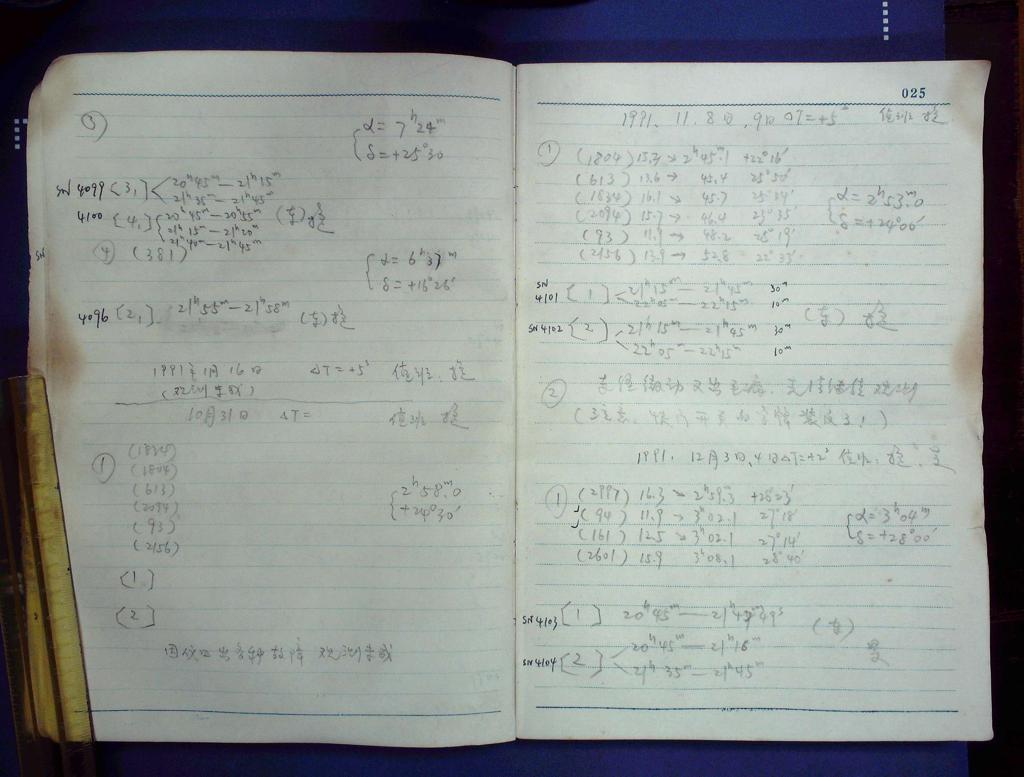 ③ α = 7ʰ24ᵐ
δ = +25°30
SN 4099 [3,] 20ʰ45ᵐ—21ʰ15ᵐ
21ʰ35ᵐ—21ʰ45ᵐ
4100 [4,] 20ʰ45ᵐ—20ʰ55ᵐ (东)
21ʰ15ᵐ—21ʰ20ᵐ
21ʰ40ᵐ—21ʰ45ᵐ
SN
④ (381) α = 6ʰ37ᵐ
δ = +16°26′
4096 [2,] 21ʰ55ᵐ—21ʰ58ᵐ (东)
1991年1月16日 ΔT=+5ˢ 值班:
(观测未成)
10月31日 ΔT= 值班
① (1834)
(1804)
(613)
(2094)
(93)
(2156)
2ʰ58ᵐ.0
+24°30′
[1]
[2]
因仪口出各种故障 观测未成
025
1991. 11. 8日, 9日 ΔT=+5ˢ 值班
① (1804) 15.3 → 2ʰ45ᵐ.1 +22°16′
(613) 13.6 → 45.4 25°50′
(1834) 16.1 → 45.7 25°34′
(2094) 15.7 → 46.4 23°35′
(93) 11.9 → 48.2 25°19′
(2156) 13.9 → 52.8 22°33′
α = 2ʰ53ᵐ.0
δ = +24°00′
SN 4101 [1] 21ʰ15ᵐ—21ʰ45ᵐ 30ᵐ
22ʰ05ᵐ—22ʰ15ᵐ 10ᵐ
(东)
SN4102 [2] 21ʰ15ᵐ—21ʰ45ᵐ 30ᵐ
22ʰ05ᵐ—22ʰ15ᵐ 10ᵐ
② 赤经微动又出毛病. 无法继续观测
(注意: 快门开关的 装反了!)
1991. 12月3日,4日 ΔT=+2ˢ 值班:
① (2997) 16.3 → 2ʰ59ᵐ.3 +28°23′
(94) 11.9 → 3ʰ02.1 27°18′
(161) 12.5 → 3ʰ02.1 27°14′
(2601) 15.9 3ʰ08.1 28°40′
α = 3ʰ04ᵐ
δ = +28°00′
SN4103 [1] 20ʰ45ᵐ—21ʰ47ᵐ49ˢ (东)
SN4104 [2] 20ʰ45ᵐ—21ʰ16ᵐ
21ʰ35ᵐ—21ʰ45ᵐ